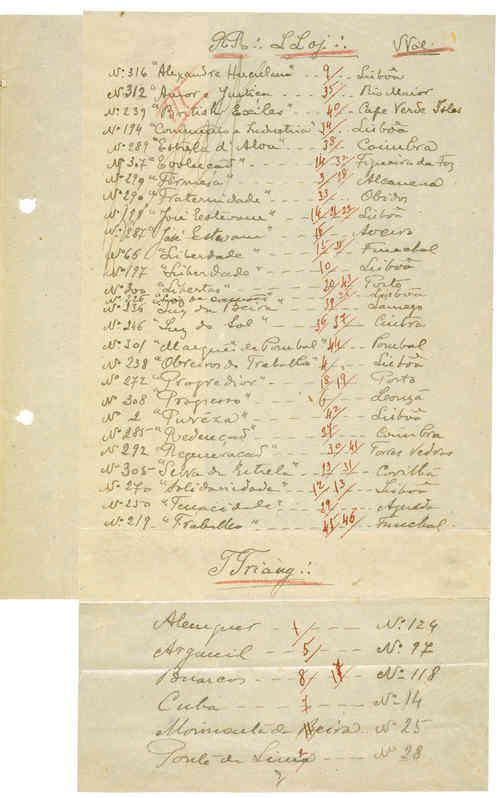 RR∴ LLoj∴ Val.
Nº 316 "Alexandre Herculano" - - 9/ - Lisbôa
Nº 312 "Amor e Justiça - - - 35/ - Rio Maior
Nº 239 "British Exiles" - - - 40/ - Cape Verde Isles
Nº 194 "Commercio e Industria" 34/ - Lisbôa
Nº 289 "Estrela d'Alva" - - - 38/ - Coimbra
Nº 317 "Evolução" - - - 14 32/ Figueira da Foz
Nº 290 - - - Alcanena
Nº 290 "Fraternidade" - - - 33 - Obidos
"José Estevam" - - Lisbôa
Nº 287 "José Estevam" - - 16/ - Aveiro
Nº 66 "Liberdade" - - 15 Funchal
Nº 197 "Liberdade" - - - 10/ - Lisbôa
"Libertas" - - - 20 43/ Porto
Lisbôa
Nº 336 "Luz da Beira" - - Lamego
Nº 246 "Luz do Sol" - - - 36 37/ - Cintra
Nº 301 "Marquês de Pombal" 44/ - Pombal
Nº 238 "Obreiros do Trabalho" 4/ - - Lisbôa
Nº 272 "Progredior" - - - 18 19/ - Porto
Nº 308 "Progresso" - - - 6/ - Louzã
Nº 2 "Purêza" - - - 42/ - Lisbôa
Nº 285 - "Redenção" - - - 27/ - Coimbra
Nº 292 "Regeneração" - - - 30 41/ Torres Vedras
Nº 305 - "Serra da Estrela" - - 31/ - Covilhã
Nº 270 "Solidariedade" - - 12 13/ - Lisbôa
Nº 250 "Tenacidade" - - - 29/ - Agueda
Nº 219 - "Trabalho" - - - 45 46/ - Funchal.
TTriâng∴
Alemquer - 1/ - - - Nº 124
Arganil - - 5/ - - - Nº 97
Buarcos - - 8/ - - Nº 118
Cuba - - - - - Nº 14
Moimenta da Beira - Nº 25
Ponte de Lima - - Nº 28